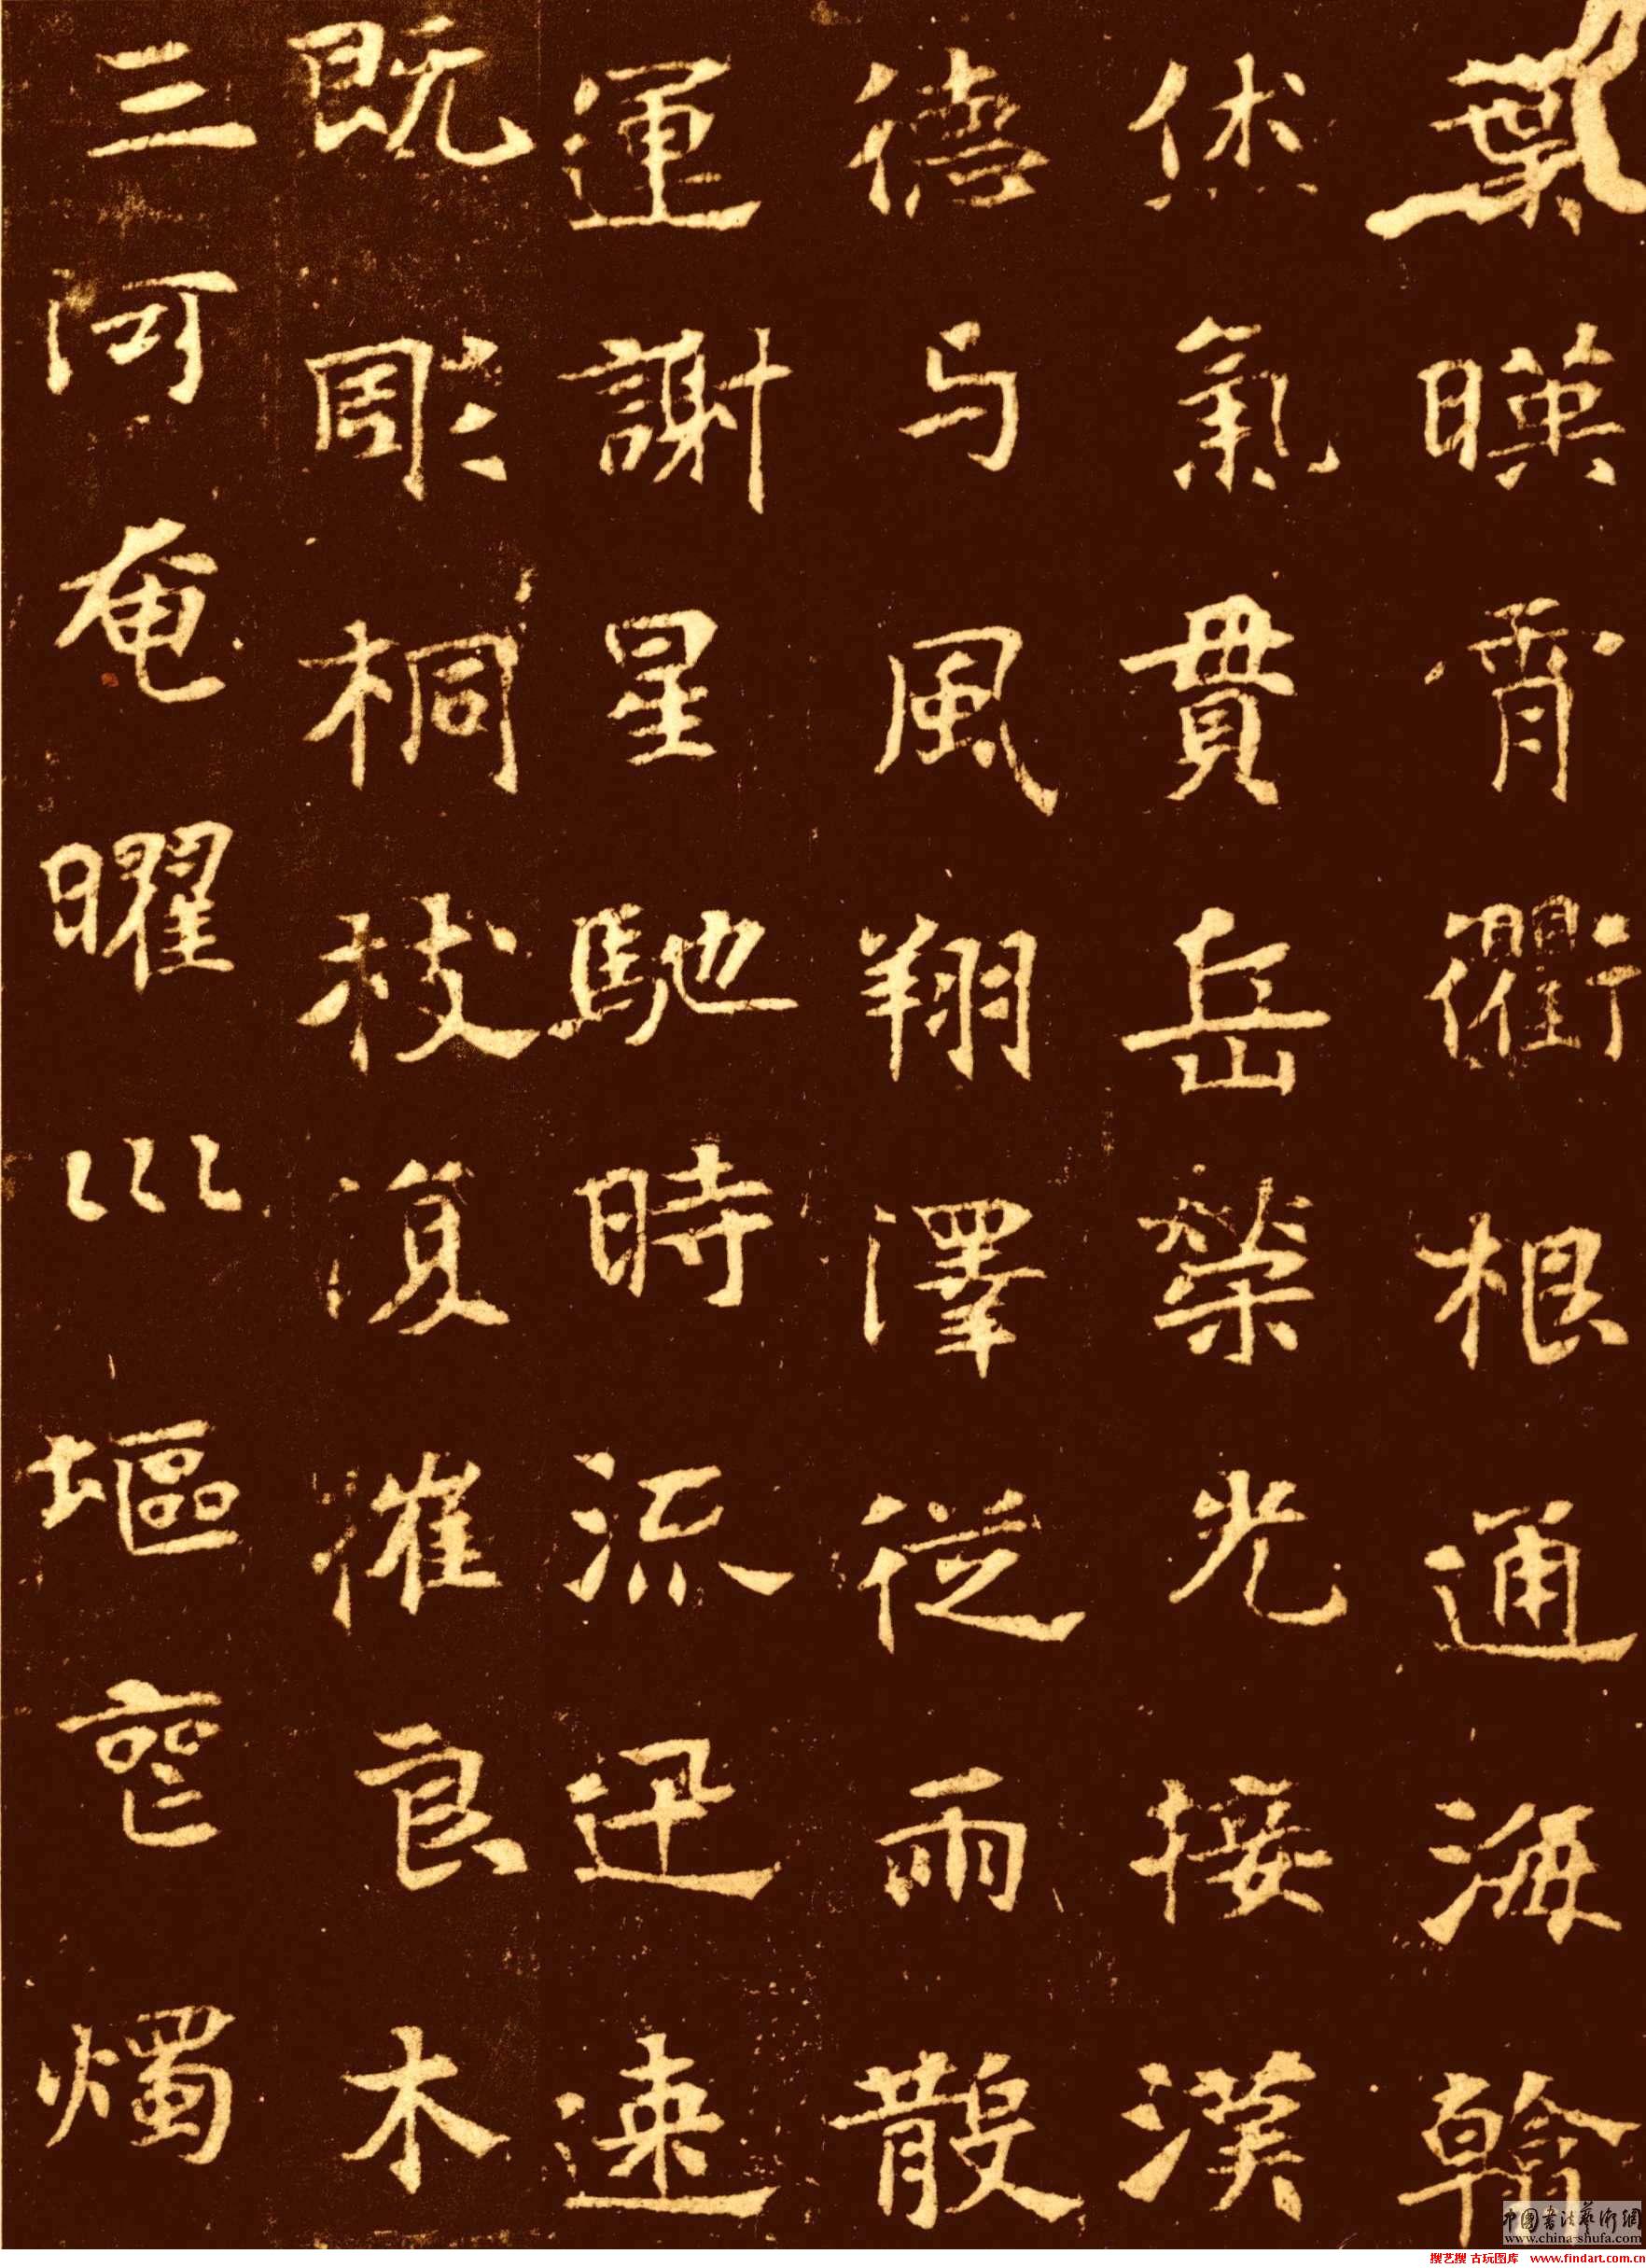 葉暎霄衢根通海翰
休氣貫岳榮光接漢
德与風翔澤從雨散
運謝星馳時流迅速
既彫桐枝復摧良木
三河奄曜川堰𡨚燭
中国书法艺术网
www.china-shufa.com
搜艺搜 古玩图库 www.findart.com.cn